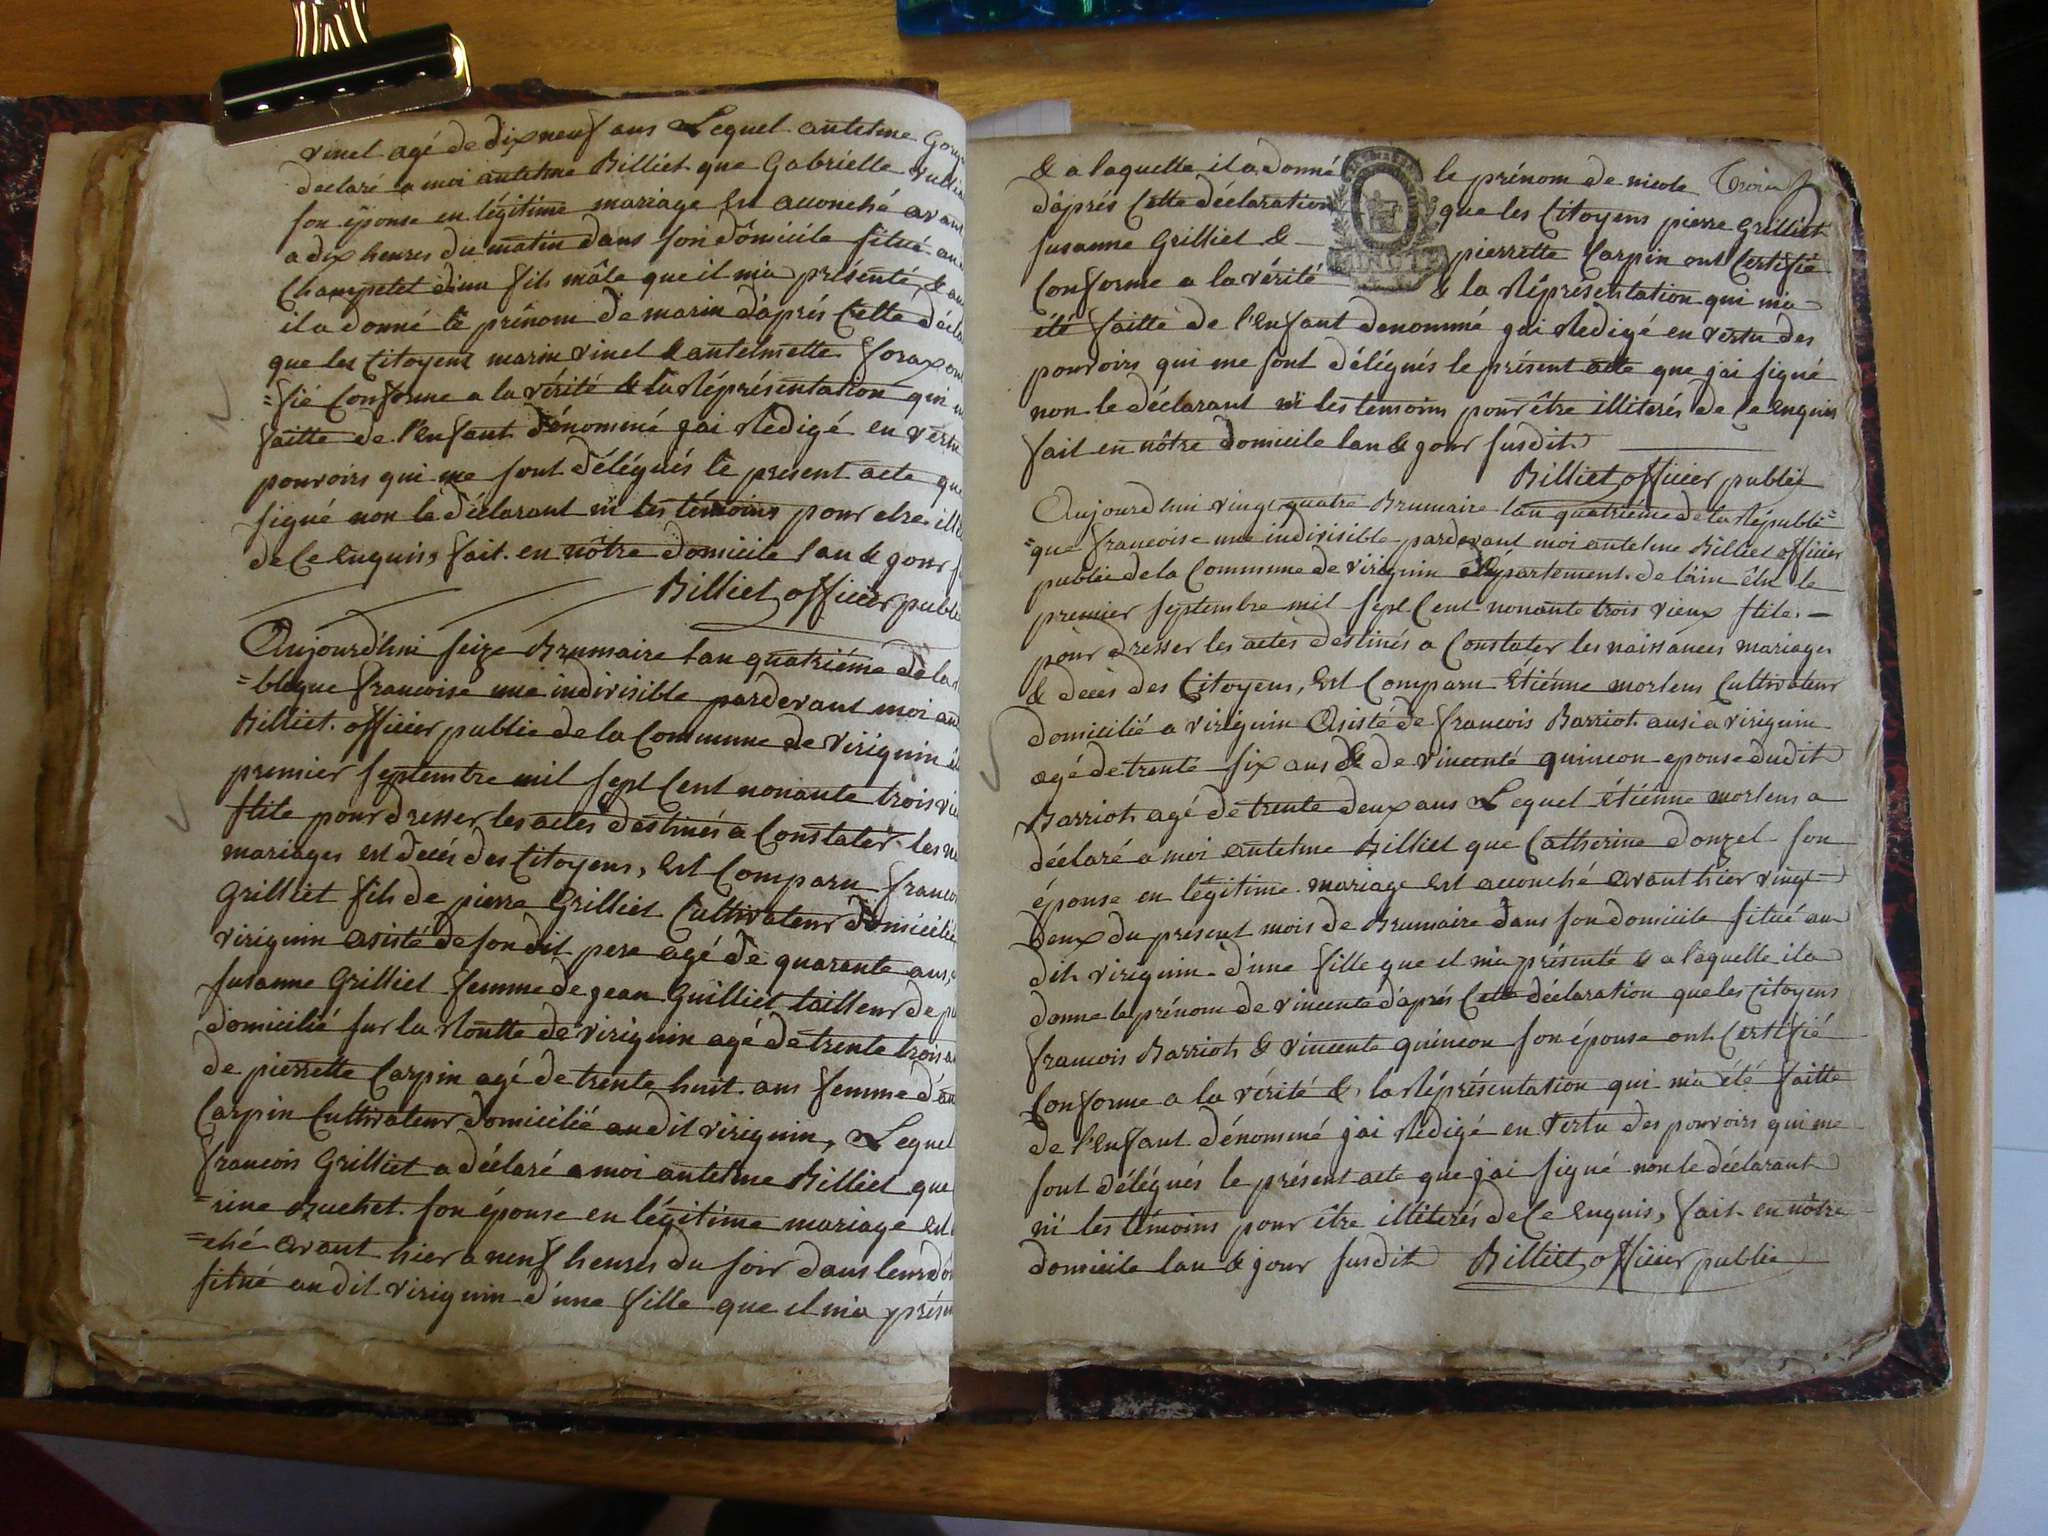 vinet agé de dix neuf ans Lequel antelme
declaré a moi antelme Billiet que Gabrielle
son épouse en légitime mariage Est accouché avant
a dix heures du matin dans son domicile situé au
Champetel d'un fils mâle que il m'a présenté, &
il a donné le prénom de marin d'après Cette
que les Citoyens marin vinet & antelmette forax
=fié Conforme a la vérité & la Réprésentation qui
faitte de l'Enfant dénommé j'ai Redigé en vertu
pouvoirs qui me sont délégués le present acte que
signé non le déclarant ni les témoins pour etre
de Ce Enquis, fait en nôtre domicile l'an & jour
Billiet officier public
Aujourd'hui seize Brumaire l'an quatriéme de la
=blique francoise une indivisible pardevant moi
Billiet officier public de la Commune de virignin
premier septembre mil sept Cent nonante trois
stile pour dresser les actes destinés a Constater les
mariages est decés des Citoyens, Est Comparu
Grilliet fils de pierre Grilliet Cultivateur domicilié
virignin asisté de son dit pere agé de quarente ans,
susanne Grilliet femme de jean Guilliet tailleur de
domicilié sur la Routte de virignin agé de trente trois
de pierrette Carpin agé de trente huit ans femme
Carpin Cultivateur domicilié audit virignin, Lequel
francois Grilliet a déclaré a moi antelme Billiet que
=rine Buchet son épouse en légitime mariage est
=ché avant hier a neuf heures du soir dans leur
situé au dit virignin d'une fille que il m'a
& a laquelle il a donné le prénom de nicole Trois
d'aprés Cette déclaration que les Citoyens pierre Grilliet
susanne Grilliet & pierrette Carpin ont Certifié
Conforme a la vérité & la Réprésentation qui m'a
été faitte de l'Enfant denommé j'ai Redigé en vertu des
pouvoirs qui me sont délégués le présent acte que j'ai signé
non le déclarant ni les temoins pour être illiterés de Ce Enquis
fait en nôtre domicile l'an & jour susdit
Billiet officier public
Aujourd'hui vingt quatre Brumaire l'an quatriéme de la Républi=
=que francoise une indivisible pardevant moi antelme Billiet officier
public de la Commune de virignin département de l'ain élu le
premier septembre mil sept Cent nonante trois vieux stile
pour dresser les actes destinés a Constater les naissances mariages
& decès des Citoyens, Est Comparu Étiénne mortens Cultivateur
domicilié a virignin Asisté de francois Barriot ausi a virignin
agé de trente six ans & de vincente quincon epouse dudit
Barriot agé de trente deux ans Lequel étiénne mortens a
déclaré a moi antelme Billiet que Catherine donzel son
épouse en légitime mariage Est accouché avant hier vingt
deux du present mois de Brumaire dans son domicile situé au
dit virignin d'une fille que il m'a présenté & a laquelle il a
donné le prénom de vincente d'aprés Cette déclaration que les Citoyens
francois Barriot & vincente quincon son épouse ont Certifié
Conforme a la vérité & la Réprésentation qui m'a été faitte
de l'Enfant dénommé j'ai Redigé en vertu des pouvoirs qui me
sont délégués le présent acte que j'ai signé non le déclarant
ni les témoins pour être illiterés de Ce Enquis, fait en nôtre
domicile l'an & jour susdit Billiet officier public